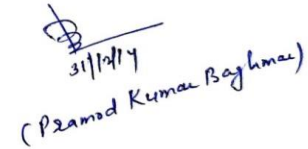 31/12/14
(Pramod Kumar Baghmar)